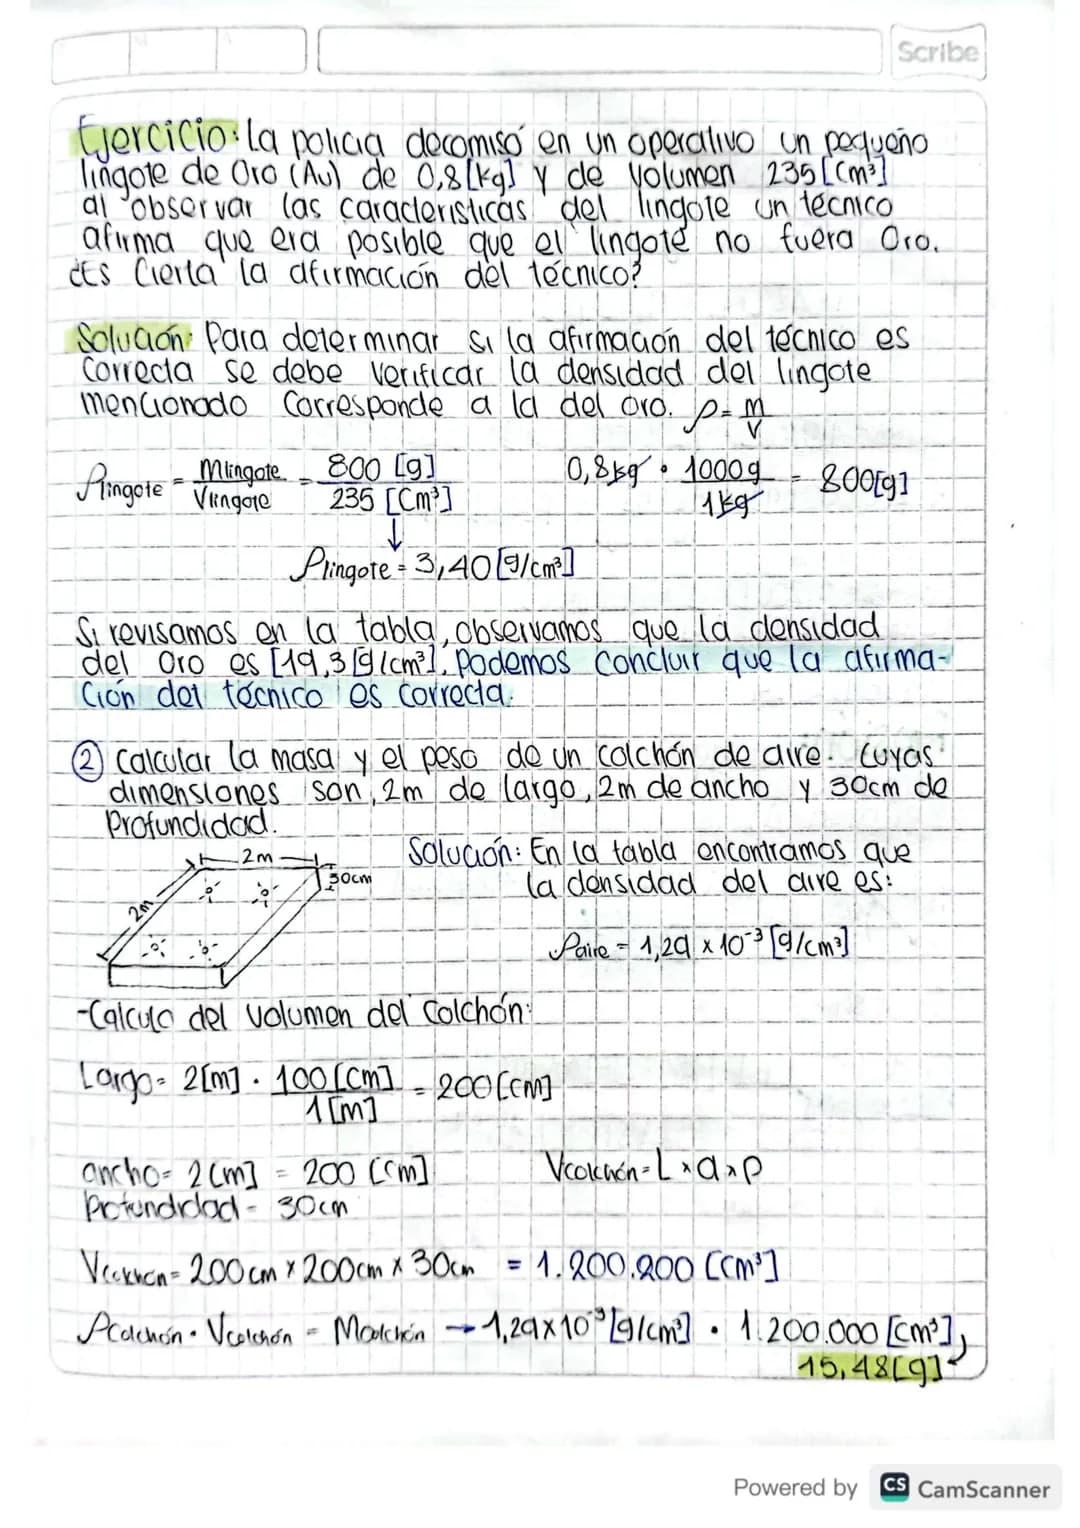 Scribe
Ejercicio: La policia decomisó en un operativo un pequeño
lingote de Oro (Au) de 0,8[kg] y de volumen 235[cm³]
al observar las caracteristicas del lingote un técnico
afirma que era posible que el lingote no fuera Oro.
¿Es Cierta la afirmación del técnico?
Solución: Para determinar si la afirmación del técnico es
Correcta se debe verificar la densidad del lingote
mencionado corresponde a la del oro. ρ = m/V
ρlingote = Mlingote/Vlingote = 800 [g]/235 [cm³] 0,8kg · 1000g/1kg = 800[g]
↓
ρlingote = 3,40[g/cm³]
Si revisamos en la tabla, observamos que la densidad
del oro es [19,3[g/cm³]. Podemos concluir que la afirma-
ción del técnico es correcta.
② Calcular la masa y el peso de un colchón de aire. Cuyas
dimensiones son, 2m de largo, 2m de ancho y 30cm de
Profundidad.
Solución: En la tabla encontramos que
la densidad del aire es:
2m
30cm
2m
ρaire = 1,29 x 10⁻³ [g/cm³]
-Calculo del volumen del Colchón:
Largo = 2[m] · 100[cm]/1[m] = 200[cm]
ancho = 2[m] = 200 [cm] Vcolchón = L x a x p
Profundidad = 30cm
Vcolchon = 200cm x 200cm x 30cm = 1.200.200 [cm³]
ρcolchón · Vcolchón = Mcolchón → 1,29x10⁻³[g/cm³] · 1.200.000 [cm³]
15,48[g]
Powered by CS CamScanner